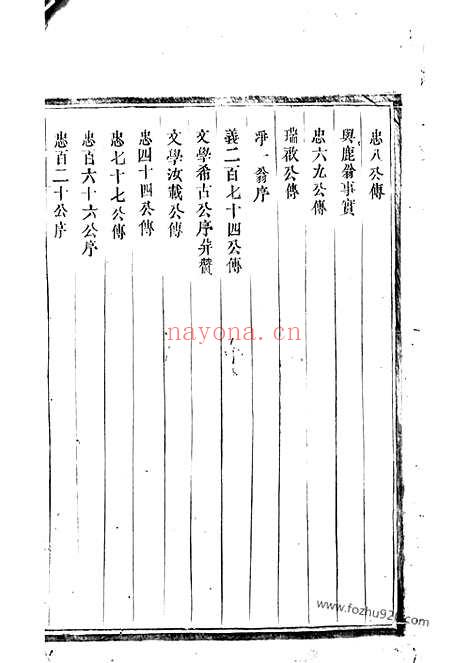 忠八公傳
與鹿翁事實
忠六九公傳
瑞啟公傳
淨一翁序
義二百七十四公傳
文學希古公序并贊
文學汝載公傳
忠四十四公傳
忠七十七公傳
忠百六十六公序
忠百二十公序
nayona.cn
www.fozhu920.com